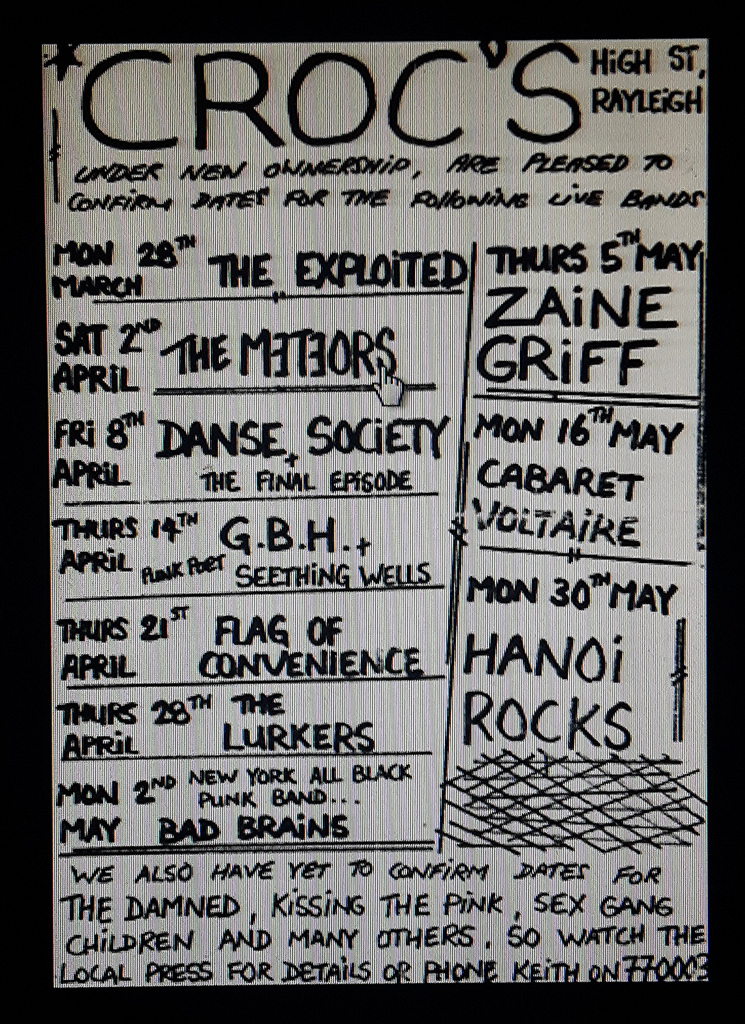 CROC'S
HiGH ST,
RAYLEiGH
UNDER NEW OWNERSHIP, ARE PLEASED TO
CONFIRM DATES FOR THE FOLLOWING LIVE BANDS
MON 28TH
MARCH
THE EXPLOiTED
SAT 2ND
APRiL
THE METEORS
FRi 8TH
APRiL
DANSE SOCiETY
+
THE FINAL EPISODE
THURS 14TH
APRIL
G.B.H. +
PUNK POET SEETHING WELLS
THURS 21ST
APRIL
FLAG OF
CONVENIENCE
THURS 28TH
APRiL
THE
LURKERS
MON 2ND
MAY
NEW YORK ALL BLACK
PUNK BAND...
BAD BRAiNS
THURS 5TH MAY
ZAiNE
GRiFF
MON 16TH MAY
CABARET
VOLTAiRE
MON 30TH MAY
HANOi
ROCKS
WE ALSO HAVE YET TO CONFIRM DATES FOR
THE DAMNED, KiSSiNG THE PiNK, SEX GANG
CHiLDREN AND MANY OTHERS. SO WATCH THE
LOCAL PRESS FOR DETAILS OR PHONE KEiTH ON 770003